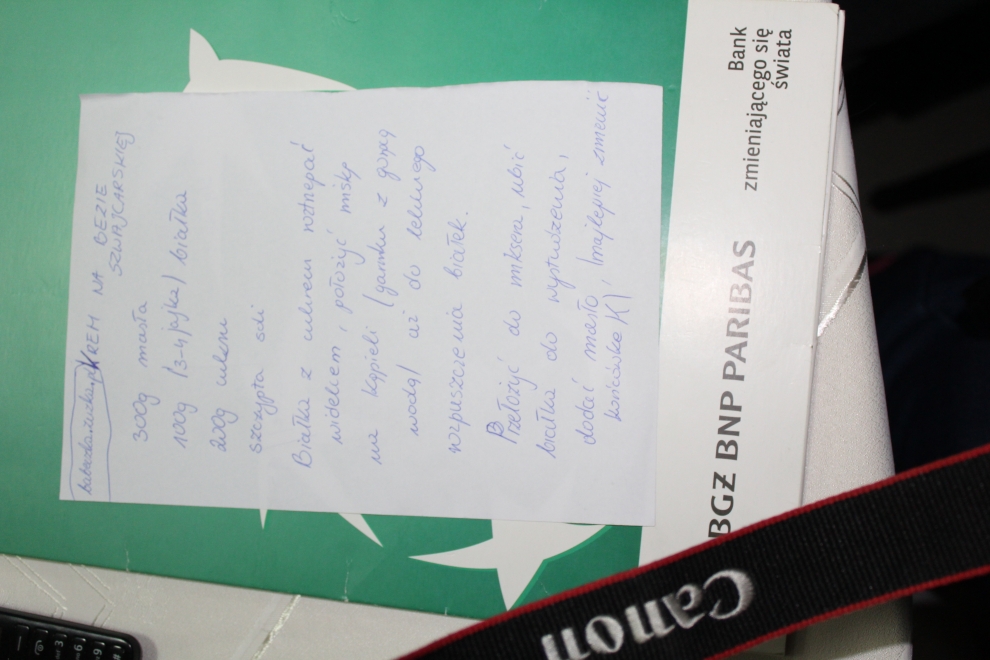 KREM NA BEZIE
SZWAJCARSKIEJ
300g masła
100g /3-4 jajka/ białka
200g cukru
szczypta soli
Białka z cukrem roztrzepać
widelcem, położyć miskę
na kąpieli /garnku z gorącą
wodą/ aż do lekkiego
rozpuszczenia białek.
Przełożyć do miksera, ubić
białka do wystudzenia,
dodać masło, /najlepiej zmienić
końcówkę K/
BGŻ BNP PARIBAS
Bank
zmieniającego się
świata
Canon
3
6
9